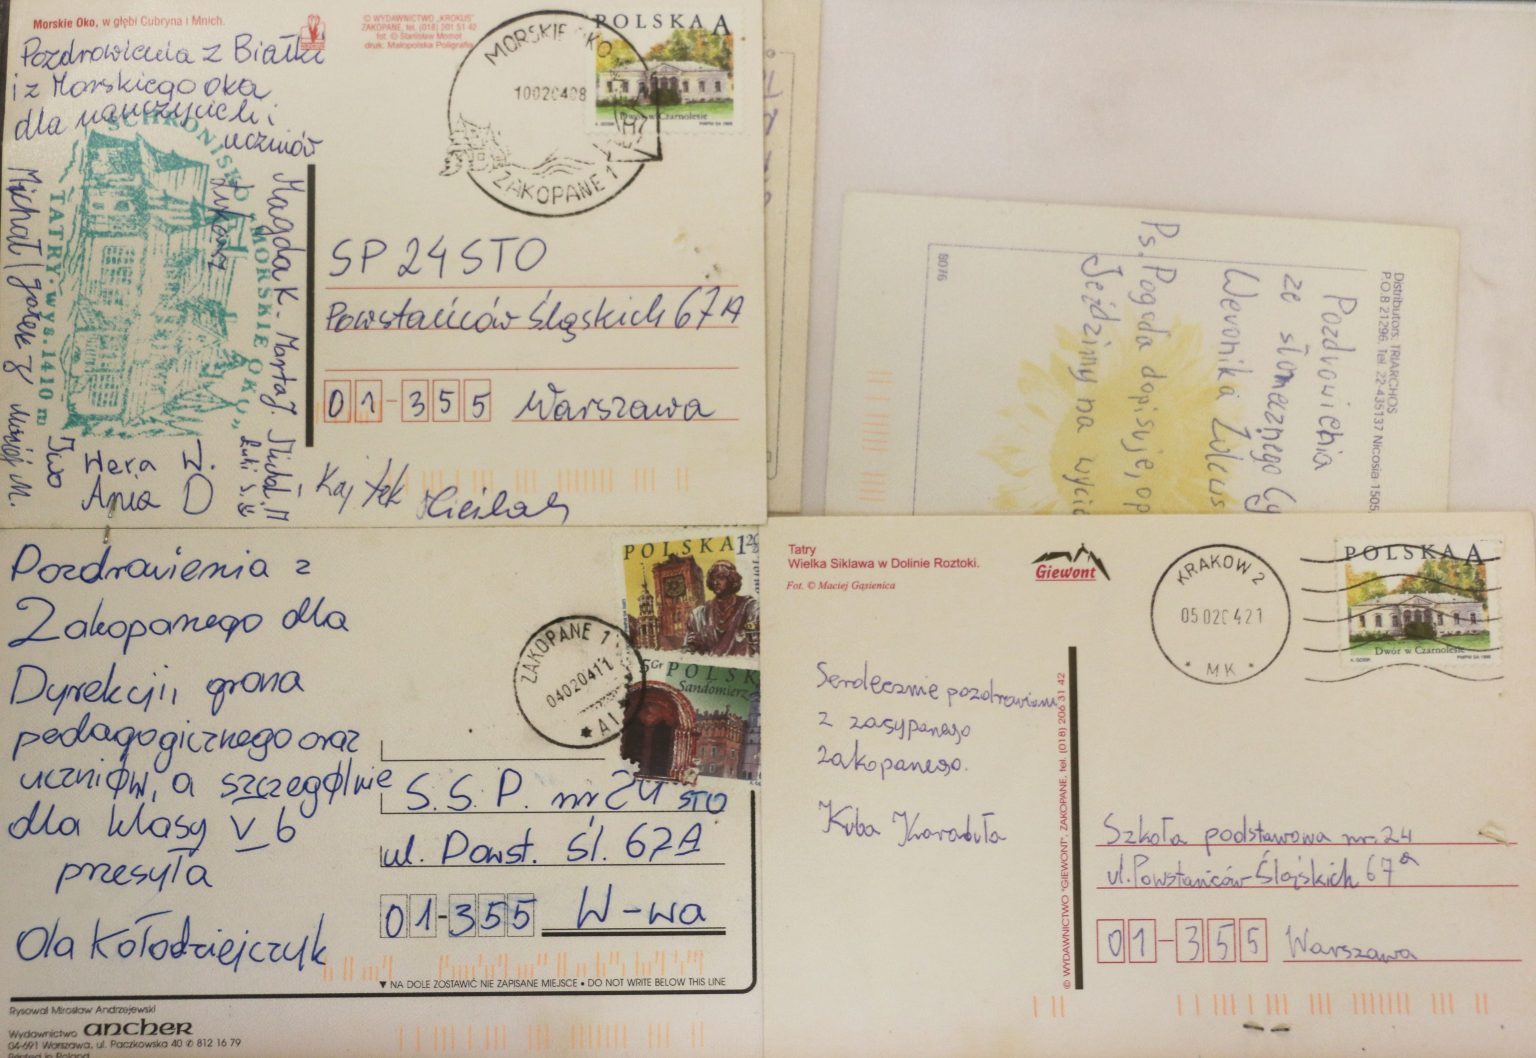 Morskie Oko, w głębi Cubryna i Mnich.
© WYDAWNICTWO "KROKUS"
ZAKOPANE, tel. (018) 201 51 42
fot. © Stanisław Momot
druk. Małopolska Poligrafia
POLSKA A
Dwór w Czarnolesie
MORSKIE OKO
10020408
ZAKOPANE 1
Pozdrowienia z Białki
i z Morskiego oka
dla nauczycieli i
uczniów
SCHRONISKO "MORSKIE OKO"
TATRY · wys. 1410 m
Łukasz
Magda K - Marta J.
Michał
Iwo
Wera W.
Ania D
Kajtek
SP 24 STO
Powstańców Śląskich 67A
01-355 Warszawa
8076
Distributors: TRIARCHOS
P.O.B 21296, Tel. 22-435137 Nicosia 1505,
Pozdrowienia
ze słonecznego Cy
Weronika
Ps. Pogoda dopisuje, op
Jeździmy na wycie
Pozdrowienia z
Zakopanego dla
Dyrekcji, grona
pedagogicznego oraz
uczniów, a szczególnie
dla klasy V b
przesyła
Ola Kołodziejczyk
POLSKA 1 20
5 Gr POLSK
Sandomierz
ZAKOPANE 1
04020411
* A1
S.S.P. nr 24 STO
ul. Powst. Śl. 67A
01-355 W-wa
▼ NA DOLE ZOSTAWIĆ NIE ZAPISANE MIEJSCE • DO NOT WRITE BELOW THIS LINE
Rysował Mirosław Andrzejewski
Wydawnictwo ancher
04-691 Warszawa, ul. Paczkowska 40 ✆ 812 16 79
Printed in Poland
Tatry
Wielka Siklawa w Dolinie Roztoki.
Fot. © Maciej Gąsienica
Giewont
KRAKÓW 2
05020421
* MK *
POLSKA A
Dwór w Czarnolesie
Serdecznie pozdrowienia
z zasypanego
zakopanego.
Kuba Karabuła
© WYDAWNICTWO "GIEWONT", ZAKOPANE, tel. (018) 206 31 42
Szkoła podstawowa nr. 24
ul. Powstańców Śląskich 67a
01-355 Warszawa